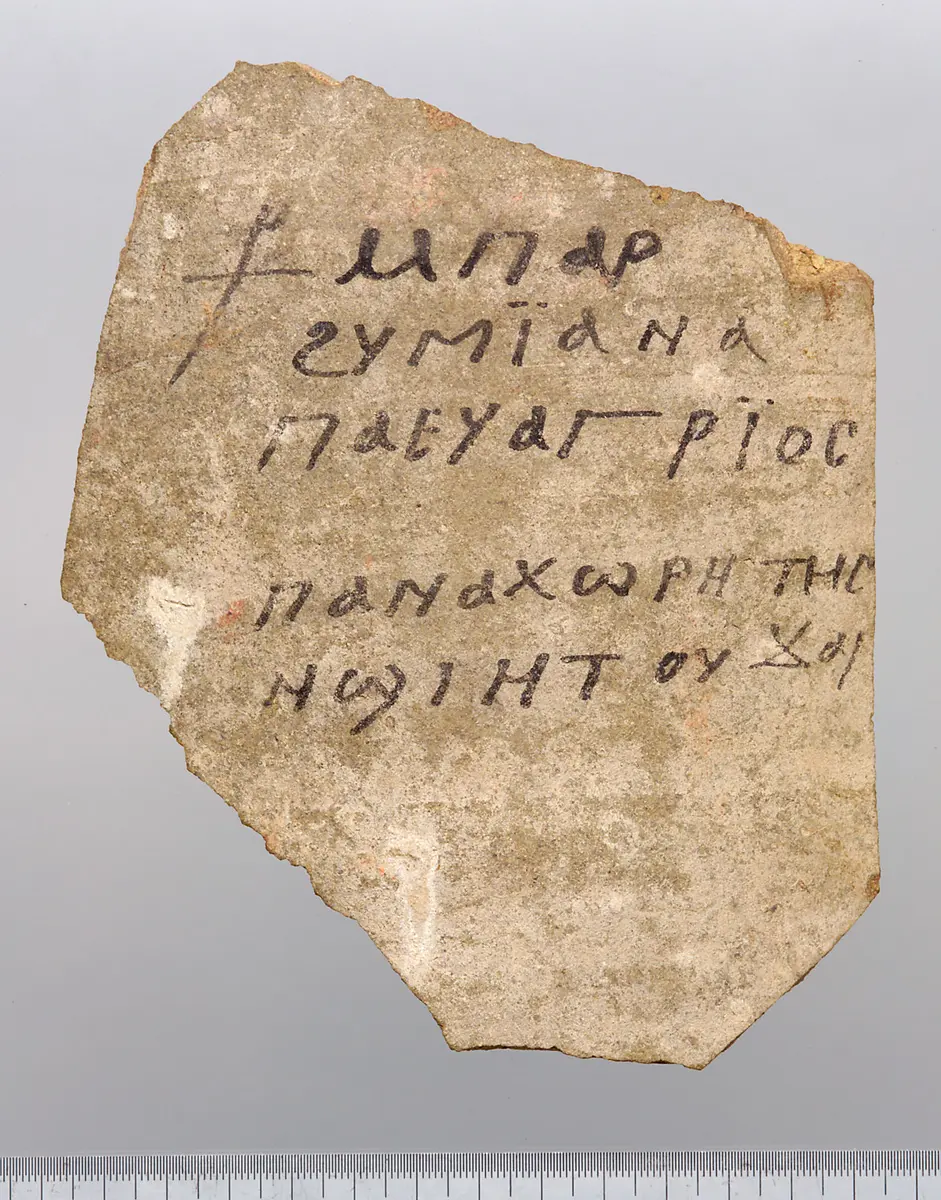 ⳨ ⲙⲡⲁⲣ
ϩⲩⲙⲓ̈ⲁⲛⲁ
ⲡⲁⲉⲩⲁⲅⲣⲓ̈ⲟⲥ
ⲡⲁⲛⲁⲭⲱⲣⲏⲧⲏⲥ
ⲛϣⲓⲏⲧ ⲟⲩϫⲁⲓ